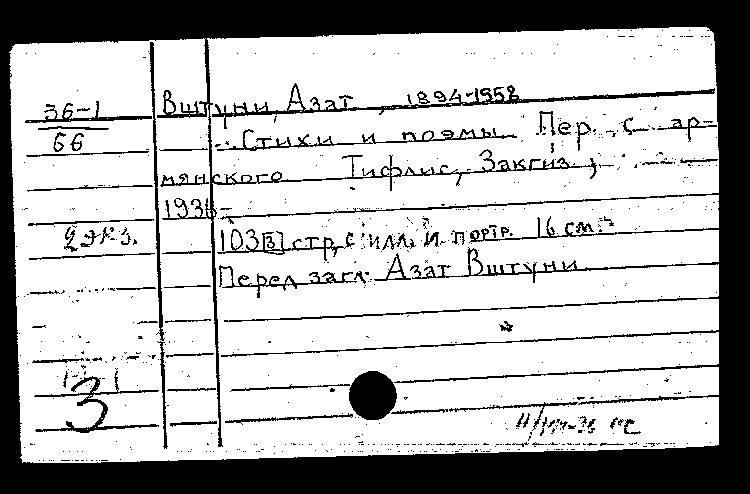 36-1
66
Вштуни, Азат, 1894-1958
Стихи и поэмы Пер. с ар-
мянского Тифлис, Закгиз,
1936
2 экз.
103[3] стр, с илл. и портр. 16 см.
Перед загл. Азат Вштуни
3